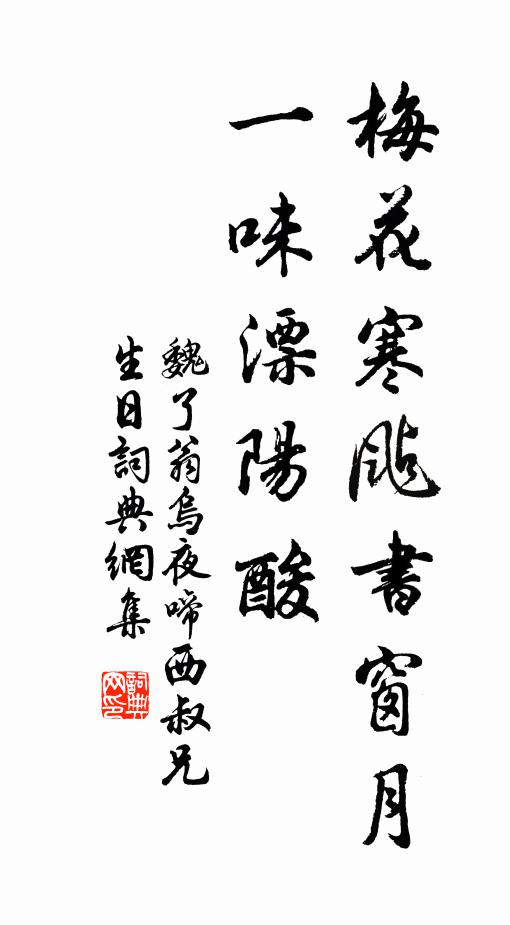 梅花寒颭書窗月
一味漂陽酸
魏了翁烏夜啼西叔兄
生日詞典網集
詞典
网印